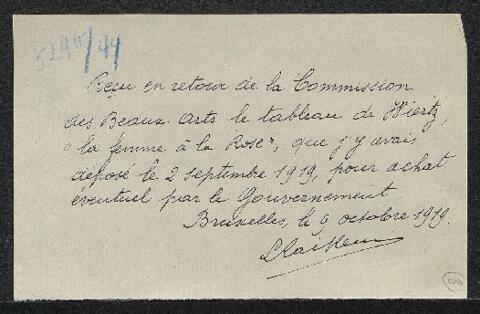 5290/44
Reçu en retour de la Commission
des Beaux Arts le tableau de Wiertz,
"la femme à la Rose", que j'y avais
déposé le 2 septembre 1919, pour achat
éventuel par le Gouvernement
Bruxelles, le 9 octobre 1919.